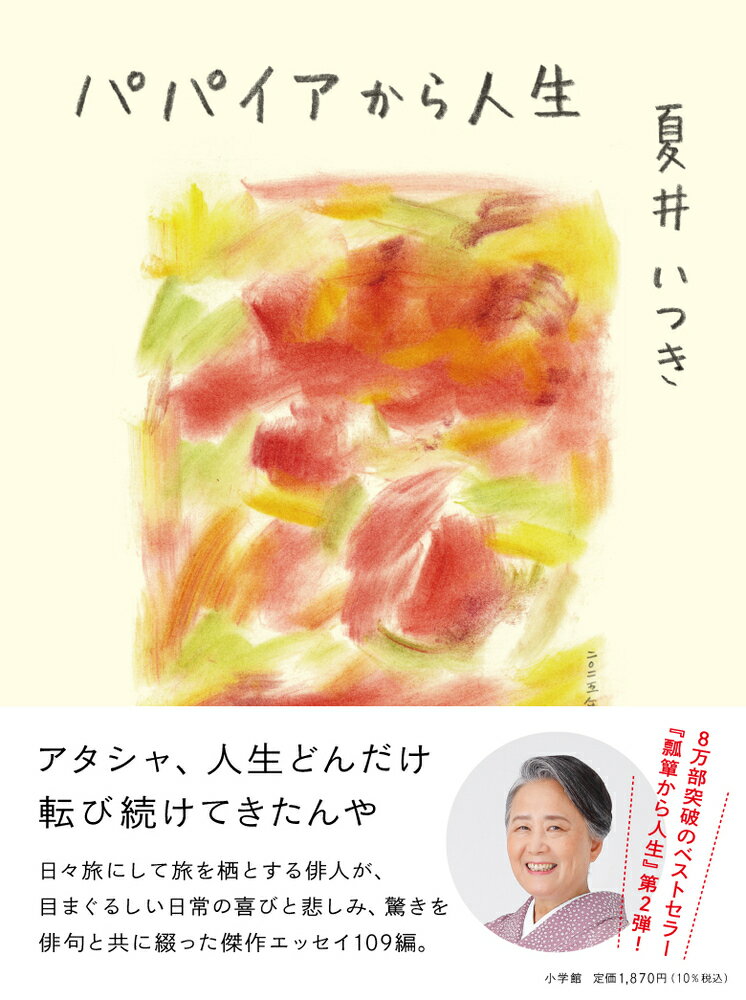 パパイアから人生
夏井いつき
二〇二五年
アタシャ、人生どんだけ
転び続けてきたんや
日々旅にして旅を栖とする俳人が、
目まぐるしい日常の喜びと悲しみ、驚きを
俳句と共に綴った傑作エッセイ109編。
8万部突破のベストセラー
『瓢箪から人生』第2弾！
小学館 定価1,870円（10％税込）